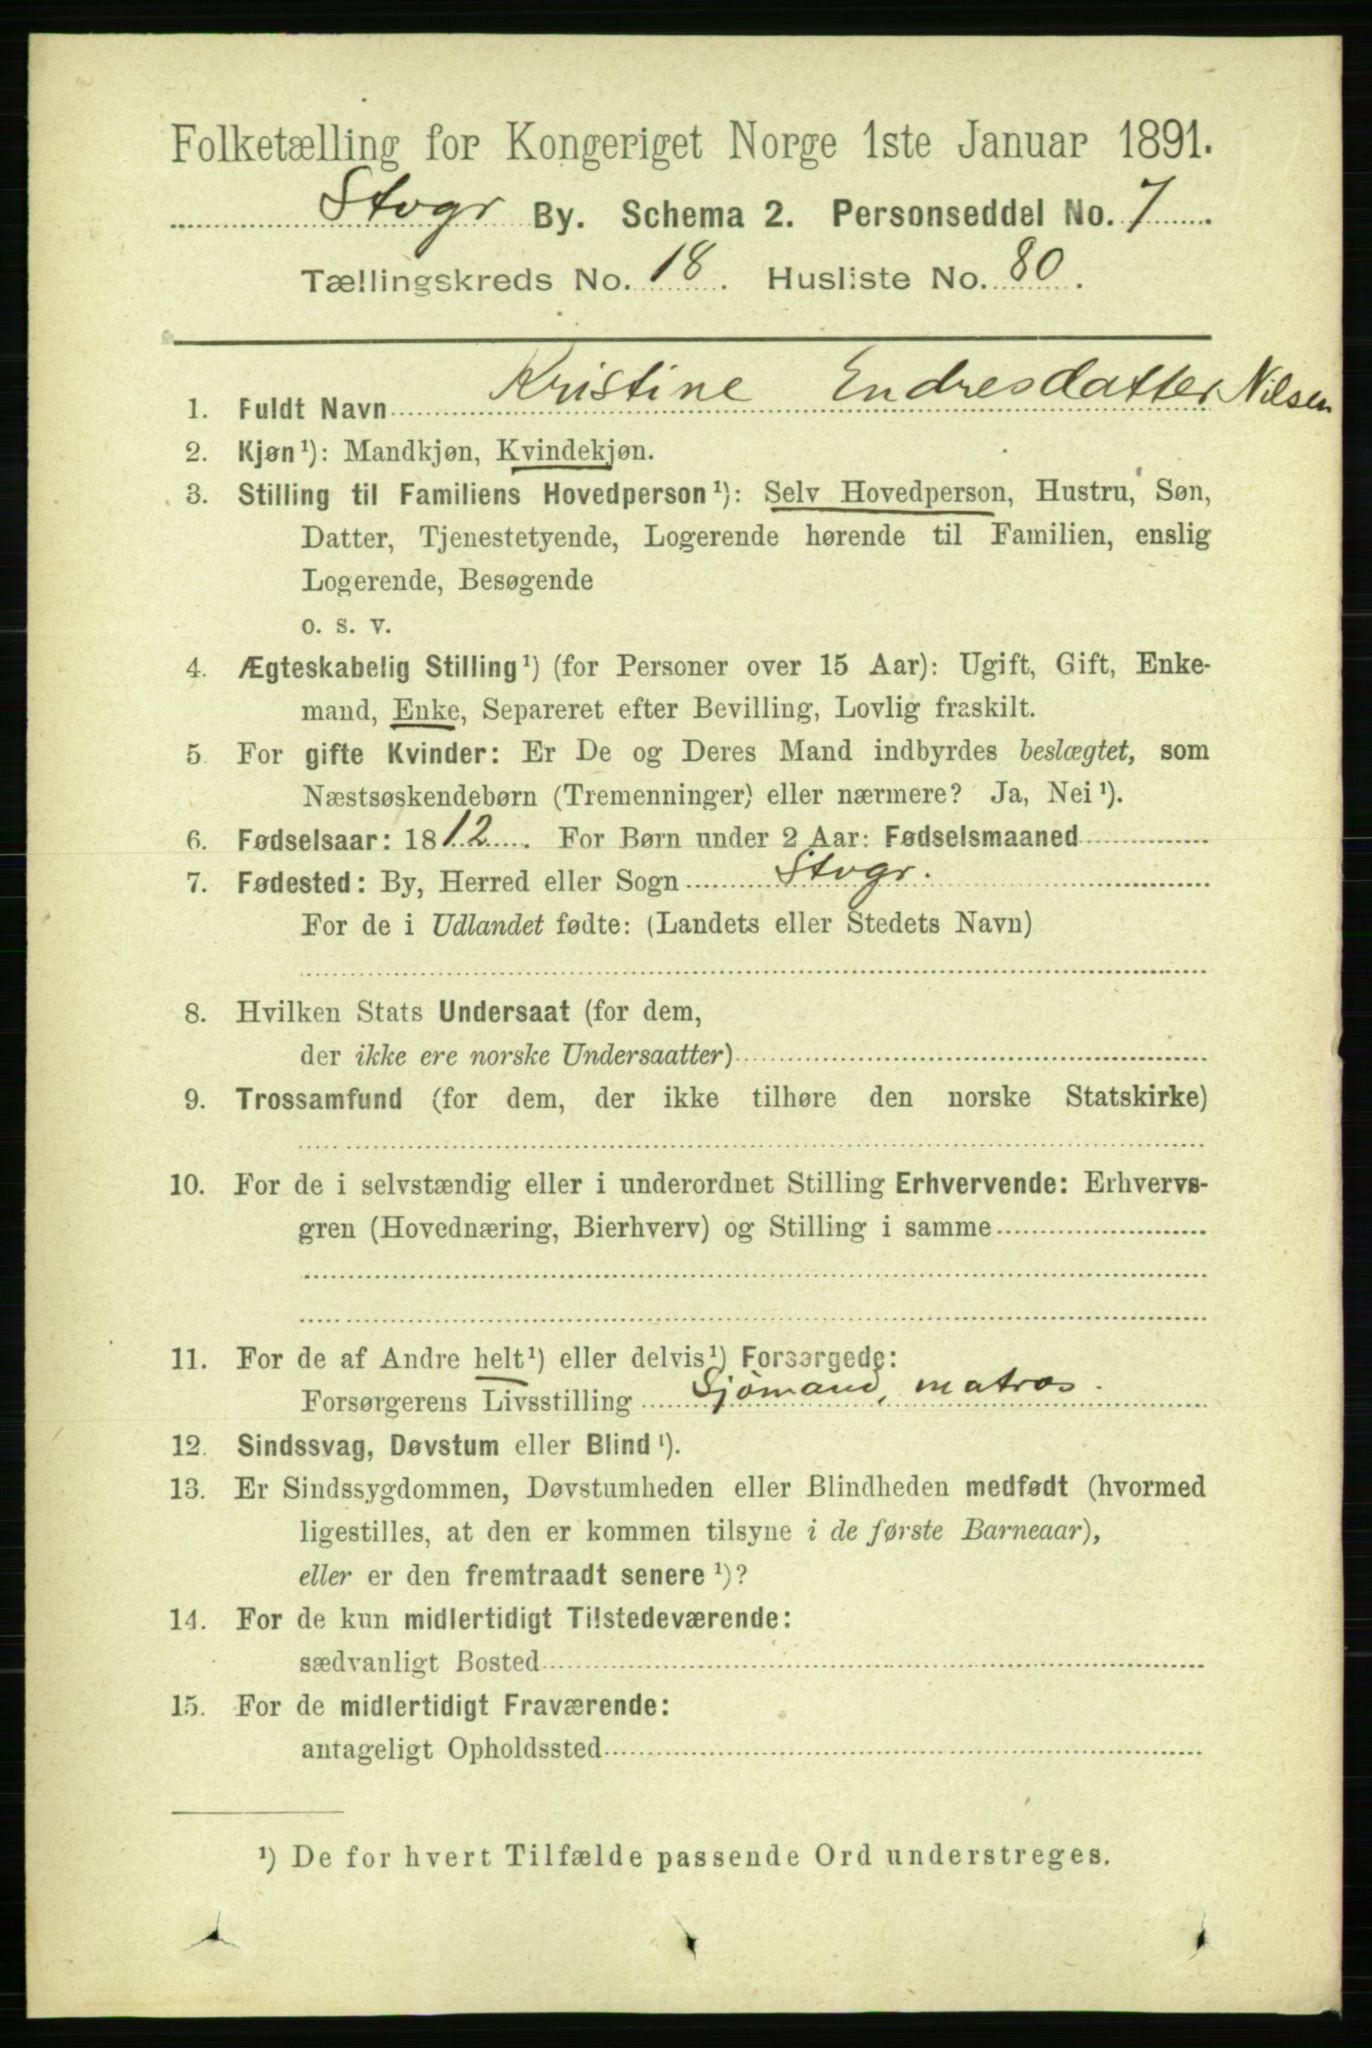 Folketælling for Kongeriget Norge 1ste Januar 1891.
Stvgr By. Schema 2. Personseddel No. 7
Tællingskreds No. 18. Husliste No. 80.
1. Fuldt Navn Kristine Endresdatter Nilsen
2. Kjøn¹): Mandkjøn, Kvindekjøn.
3. Stilling til Familiens Hovedperson¹): Selv Hovedperson, Hustru, Søn,
Datter, Tjenestetyende, Logerende hørende til Familien, enslig
Logerende, Besøgende
o. s. v.
4. Ægteskabelig Stilling¹) (for Personer over 15 Aar): Ugift, Gift, Enke-
mand, Enke, Separeret efter Bevilling, Lovlig fraskilt.
5. For gifte Kvinder: Er De og Deres Mand indbyrdes beslægtet, som
Næstsøskendebørn (Tremenninger) eller nærmere? Ja, Nei¹).
6. Fødselsaar: 1812. For Børn under 2 Aar: Fødselsmaaned
7. Fødested: By, Herred eller Sogn Stvgr.
For de i Udlandet fødte: (Landets eller Stedets Navn)
8. Hvilken Stats Undersaat (for dem,
der ikke ere norske Undersaatter)
9. Trossamfund (for dem, der ikke tilhøre den norske Statskirke)
10. For de i selvstændig eller i underordnet Stilling Erhvervende: Erhvervs-
gren (Hovednæring, Bierhverv) og Stilling i samme
11. For de af Andre helt¹) eller delvis¹) Forsørgede:
Forsørgerens Livsstilling Sjömand, matros.
12. Sindssvag, Døvstum eller Blind¹).
13. Er Sindssygdommen, Døvstumheden eller Blindheden medfødt (hvormed
ligestilles, at den er kommen tilsyne i de første Barneaar),
eller er den fremtraadt senere¹)?
14. For de kun midlertidigt Tilstedeværende:
sædvanligt Bosted
15. For de midlertidigt Fraværende:
antageligt Opholdssted
¹) De for hvert Tilfælde passende Ord understreges.